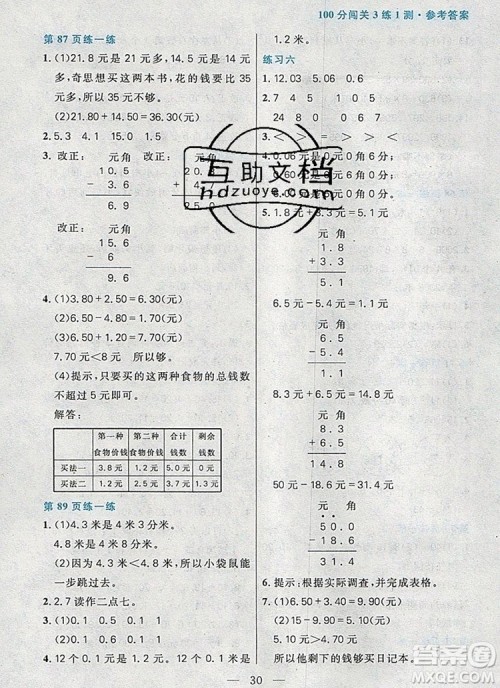 100分闯关3练1测·参考答案
第87页练一练
1.(1)21.8元是21元多,14.5元是14元
多,奇思想买这两本书,花的钱要比35元
多,所以35元不够。
(2)21.80+14.50=36.30(元)
2.5.3 4.1 15.0 1.5
3. 改正: 元角 改正: 元角
10.5
18.4
- 3.6
9
25.0
改正: 元角
15.6
- 6
9.6
4.(1)3.80+2.50=6.30(元)
(2)5.20+2.50=7.70(元)
7.70元<8元 所以够。
(4)提示:只要买的这两种食物的总钱数
不超过5元即可。
解答:
第一种食物价钱 第二种食物价钱 合计钱数 剩余钱数
买法一 3.8元 1.2元 5.0元 0元
买法二 1.2元 2.5元 3.7元 1.3元
第89页练一练
1.(1)4.3米是4米3分米。
4.8米是4米8分米。
(2)5米>4.8米>4.3米,所以小袋鼠能
一步跳过去。
2.2.7读作二点七。
3.(1)0.1 0.8 (2)0.1 0.9
4.12个0.1元是1.2元。12个0.1米是
1.2米。
练习六
1.12.03 5.25 0.6
2.7 24 8 0 7
480 105 0.8
3.< > < > > >
4.0.06元是0元6分;
0.60元是0元6角;
5.1.8元+3.3元=5.1元
元 角
1.8
+ 3.3
5.1
6.5元-5.4元=1.1元
元 角
6.5
- 5.4
1.1
8.3元+6.5元=14.8元
元 角
8.3
+ 6.5
14.8
50元-49.6元=0.4元
元 角
50.0
- 49.6
0.4
6. 提示:根据实际调查,并完成表格。
7.(1)6.50+3.40=9.90(元)
(2)15-9.90=5.10(元)
5.10元>4.50元
所以他剩下的钱够买日记本。
互助文档
hdzuoye.com
30
作业帮